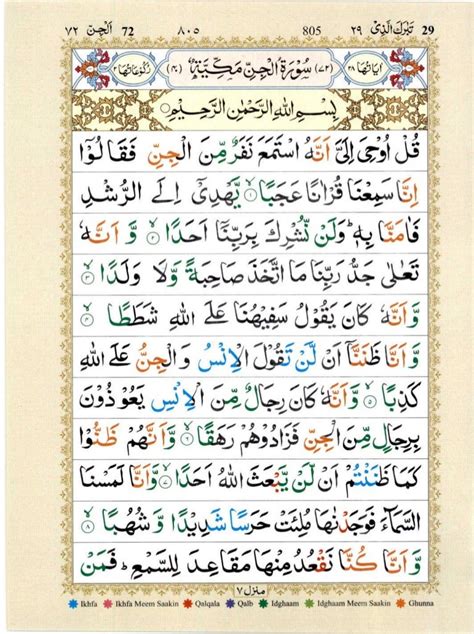 ٧٢ اَلْجِنّ 72 ٨٠٥ 805 تَبٰرَكَ الَّذِىْ ٢٩ 29
اٰيَاتُهَا ٢٨ (٧٢) سُوْرَةُ الْجِنِّ مَكِّيَّةٌ (٤٠) رُكُوْعَاتُهَا ٢
بِسْمِ اللّٰهِ الرَّحْمٰنِ الرَّحِيْمِ
قُلْ اُوْحِىَ اِلَىَّ اَنَّهُ اسْتَمَعَ نَفَرٌ مِّنَ الْجِنِّ فَقَالُوْٓا
اِنَّا سَمِعْنَا قُرْاٰنًا عَجَبًا ۙ﴿۱﴾ يَّهْدِىْٓ اِلَى الرُّشْدِ
فَاٰمَنَّا بِهٖ ؕ وَلَنْ نُّشْرِكَ بِرَبِّنَاۤ اَحَدًا ۙ﴿۲﴾ وَّ اَنَّهٗ
تَعٰلٰى جَدُّ رَبِّنَا مَا اتَّخَذَ صَاحِبَةً وَّلَا وَلَدًا ۙ﴿۳﴾
وَّ اَنَّهٗ كَانَ يَقُوْلُ سَفِيْهُنَا عَلَى اللّٰهِ شَطَطًا ۙ﴿۴﴾
وَّ اَنَّا ظَنَنَّاۤ اَنْ لَّنْ تَقُوْلَ الْاِنْسُ وَ الْجِنُّ عَلَى اللّٰهِ
كَذِبًا ۙ﴿۵﴾ وَّاَنَّهٗ كَانَ رِجَالٌ مِّنَ الْاِنْسِ يَعُوْذُوْنَ
بِرِجَالٍ مِّنَ الْجِنِّ فَزَادُوْهُمْ رَهَقًا ۙ﴿۶﴾ وَّاَنَّهُمْ ظَنُّوْا
كَمَا ظَنَنْتُمْ اَنْ لَّنْ يَّبْعَثَ اللّٰهُ اَحَدًا ۙ﴿۷﴾ وَّاَنَّا لَمَسْنَا
السَّمَآءَ فَوَجَدْنٰهَا مُلِئَتْ حَرَسًا شَدِيْدًا وَّ شُهُبًا ۙ﴿۸﴾
وَّ اَنَّا كُنَّا نَقْعُدُ مِنْهَا مَقَاعِدَ لِلسَّمْعِ ؕ فَمَنْ
منزل ٧
Ikhfa Ikhfa Meem Saakin Qalqala Qalb Idghaam Idghaam Meem Saakin Ghunna